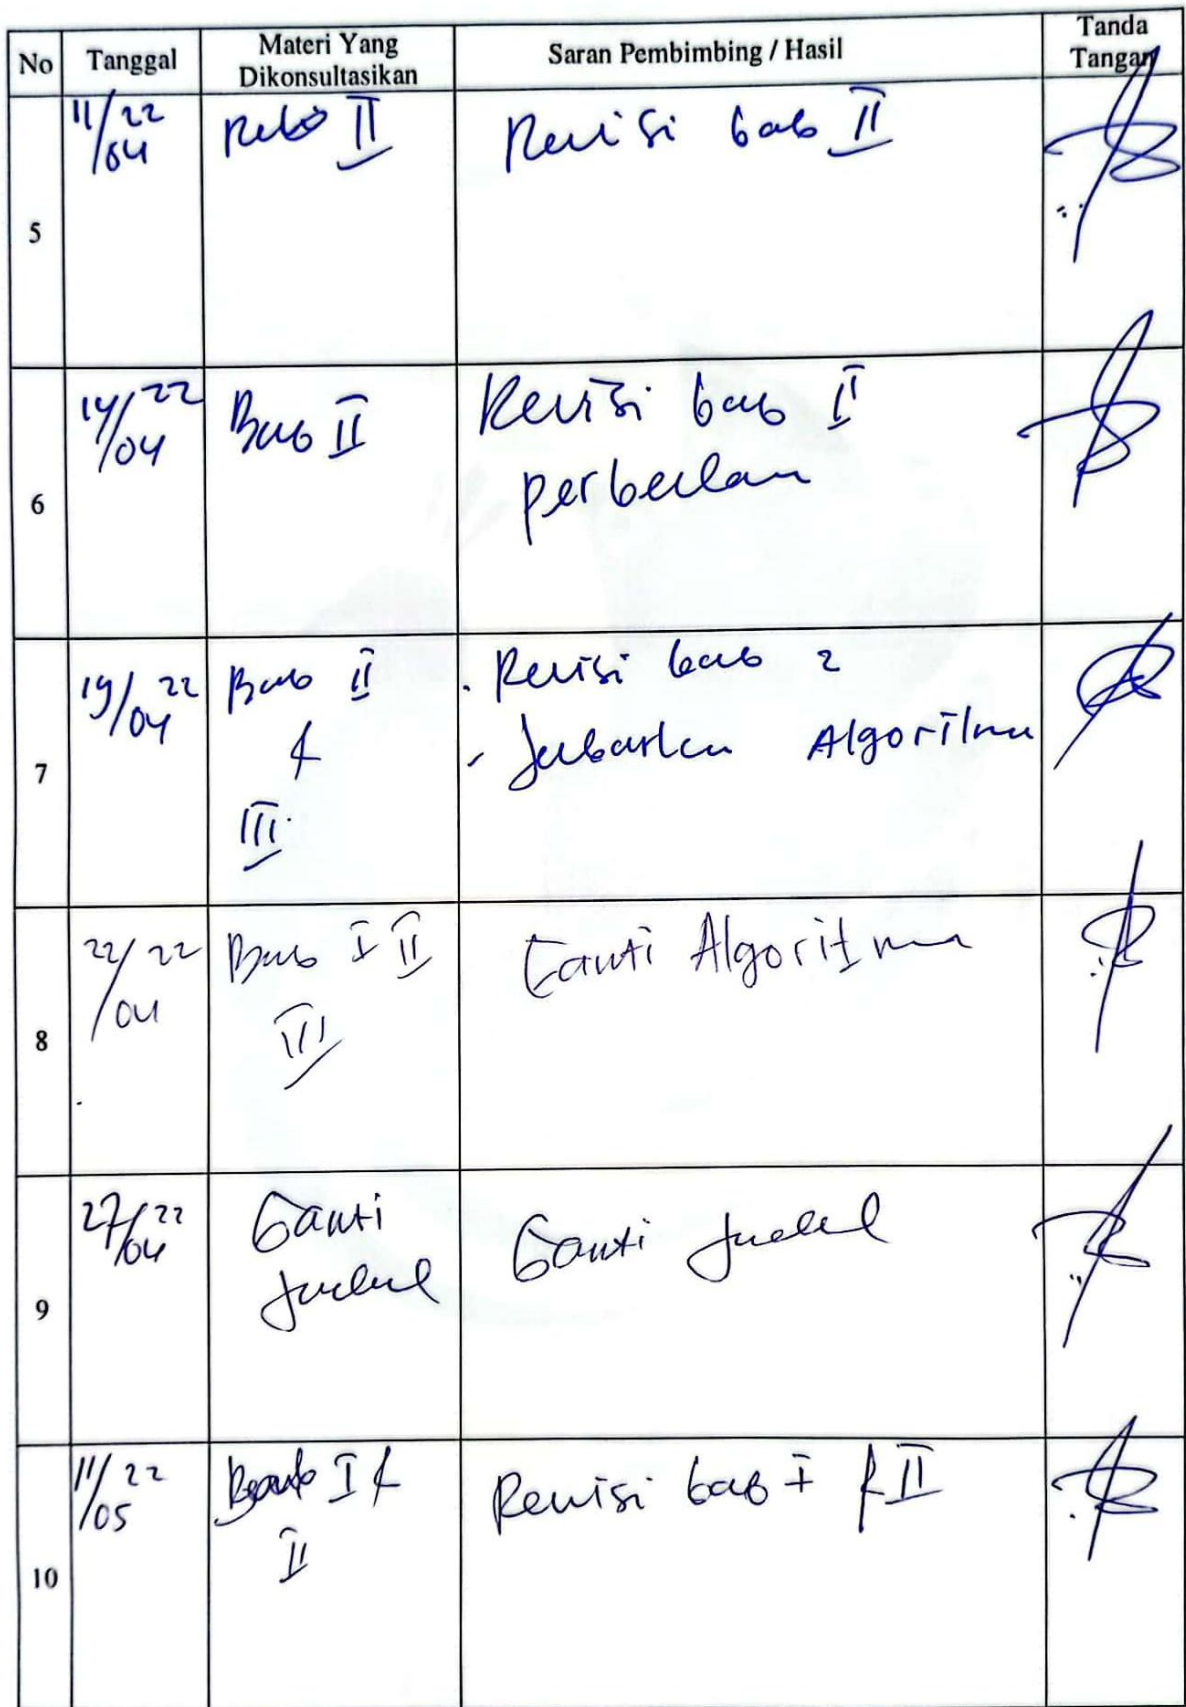 No Tanggal Materi Yang Dikonsultasikan Saran Pembimbing / Hasil Tanda Tangan
5 11/04 22 Bab II Revisi bab II
6 14/04 22 Bab II Revisi bab II
perbaikan
7 19/04 22 Bab II . Revisi bab 2
& - Jabarkan Algoritma
III
8 22/04 22 Bab I II Ganti Algoritma
III
9 27/04 22 Ganti Ganti Judul
Judul
10 11/05 22 Bab I & Revisi bab I & II
II